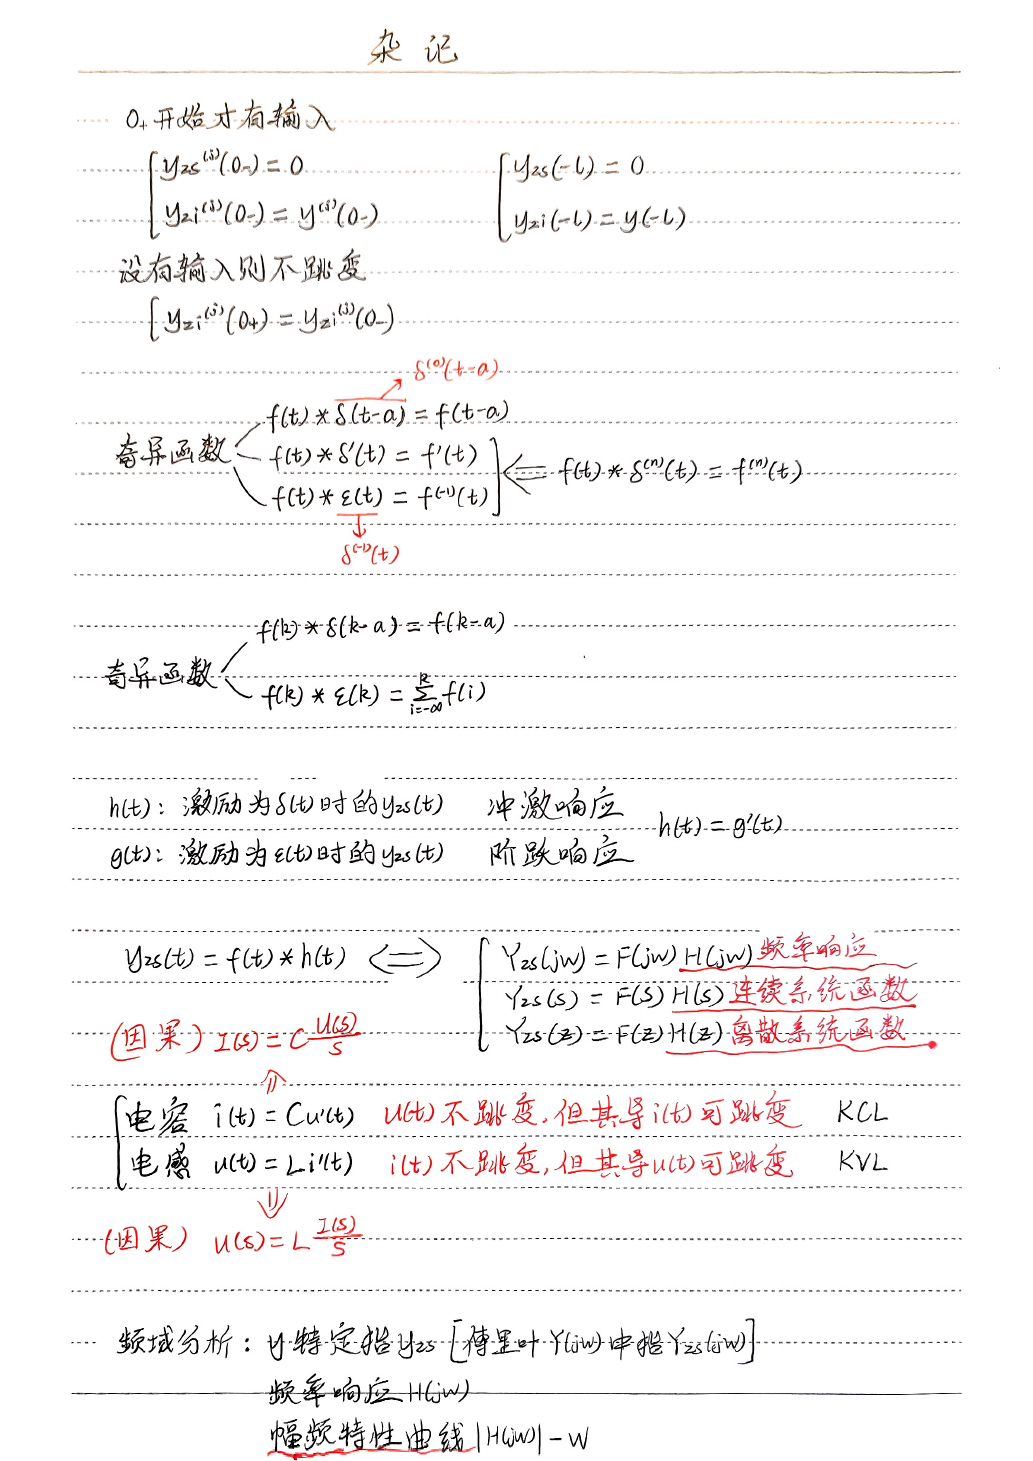 杂记
0₊开始才有输入
{ yzs⁽ʲ⁾(0₋) = 0    { yzs(-l) = 0
yzi⁽ʲ⁾(0₋) = y⁽ʲ⁾(0₋)    yzi(-l) = y(-l)
没有输入则不跳变
{ yzi⁽ʲ⁾(0₊) = yzi⁽ʲ⁾(0₋)
δ⁽⁰⁾(t-a)
f(t) * δ(t-a) = f(t-a)
奇异函数 f(t) * δ'(t) = f'(t) ] ⇐ f(t) * δ⁽ⁿ⁾(t) = f⁽ⁿ⁾(t)
f(t) * ε(t) = f⁽⁻¹⁾(t)
δ⁽⁻¹⁾(t)
f(k) * δ(k-a) = f(k-a)
奇异函数
f(k) * ε(k) = Σ_{i=-∞}^{k} f(i)
h(t): 激励为δ(t)时的yzs(t)  冲激响应  h(t) = g'(t)
g(t): 激励为ε(t)时的yzs(t)  阶跃响应
yzs(t) = f(t) * h(t) ⇔ { Yzs(jw) = F(jw) H(jw) 频率响应
Yzs(s) = F(s) H(s) 连续系统函数
Yzs(z) = F(z) H(z) 离散系统函数
(因果) I(s) = C U(s)/s
⇑
{ 电容 i(t) = Cu'(t) u(t)不跳变,但其导i(t)可跳变 KCL
电感 u(t) = Li'(t) i(t)不跳变,但其导u(t)可跳变 KVL
⇓
(因果) U(s) = L I(s)/s
频域分析: y特定指yzs [傅里叶Y(jw)中指Yzs(jw)]
频率响应H(jw)
幅频特性曲线|H(jw)| - w